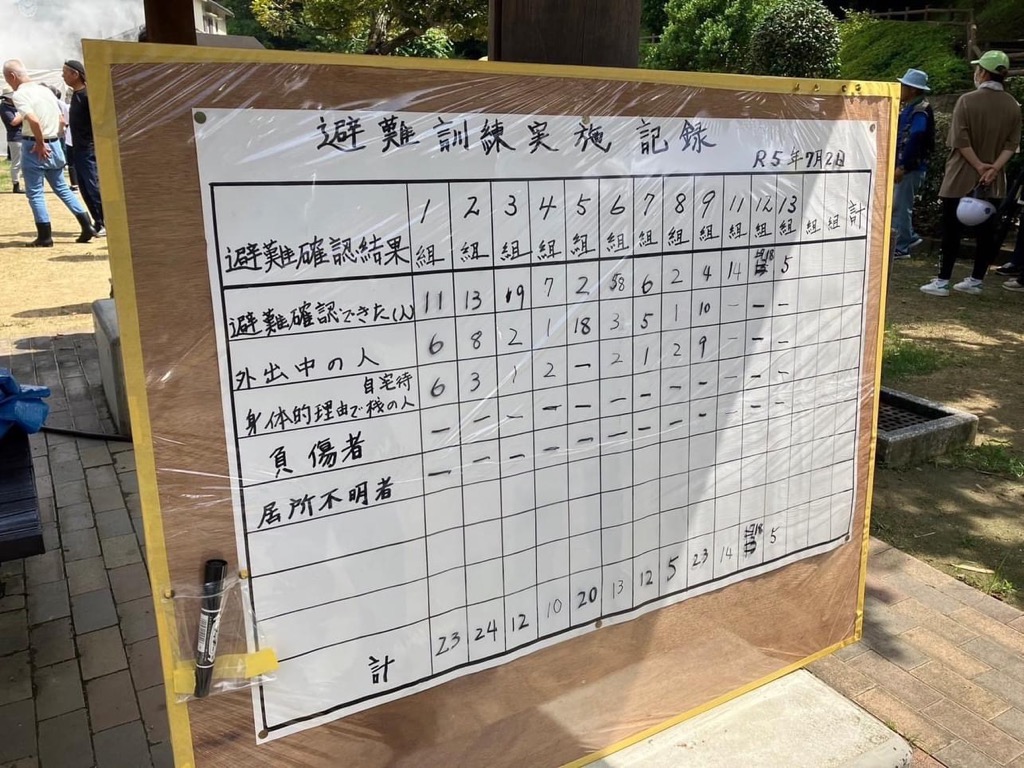 避難訓練実施記録
R5年7月2日
避難確認結果 1組 2組 3組 4組 5組 6組 7組 8組 9組 11組 12組 13組 組 組 計
避難確認できた(人) 11 13 9 7 2 8 6 2 4 14 18 5
外出中の人 6 8 2 1 18 3 5 1 10 — — —
身体的理由で自宅待機の人 6 3 1 2 — 2 1 2 9 — — —
負傷者 — — — — — — — — — — — —
居所不明者 — — — — — — — — — — — —
計 23 24 12 10 20 13 12 5 23 14 18 5